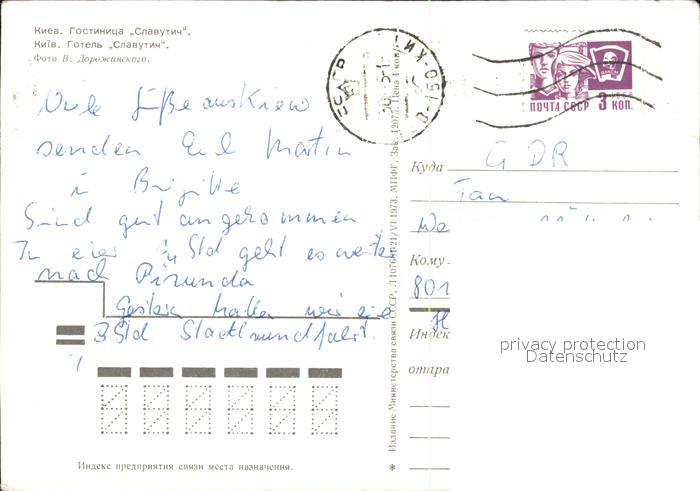 Киев. Гостиница „Славутич“.
Київ. Готель „Славутич“.
Фото В. Дорожинского.
Viele Grüße aus Kiew
senden Euch Martin
u Brigitte
Sind gut angekommen
In einer Std geht es weiter
nach Pizunda
Gestern hatten wir eine
3 Std Stadtrundfahrt.
Индекс предприятия связи места назначения.
Издание Министерства связи СССР. 21/VI 1973. МПФГ. Зак. 12075. Цена 4 коп.
ПОЧТА СССР 3 КОП.
1966
Куда
GDR
Fam
Кому
801
Индек
отпра
privacy protection
Datenschutz